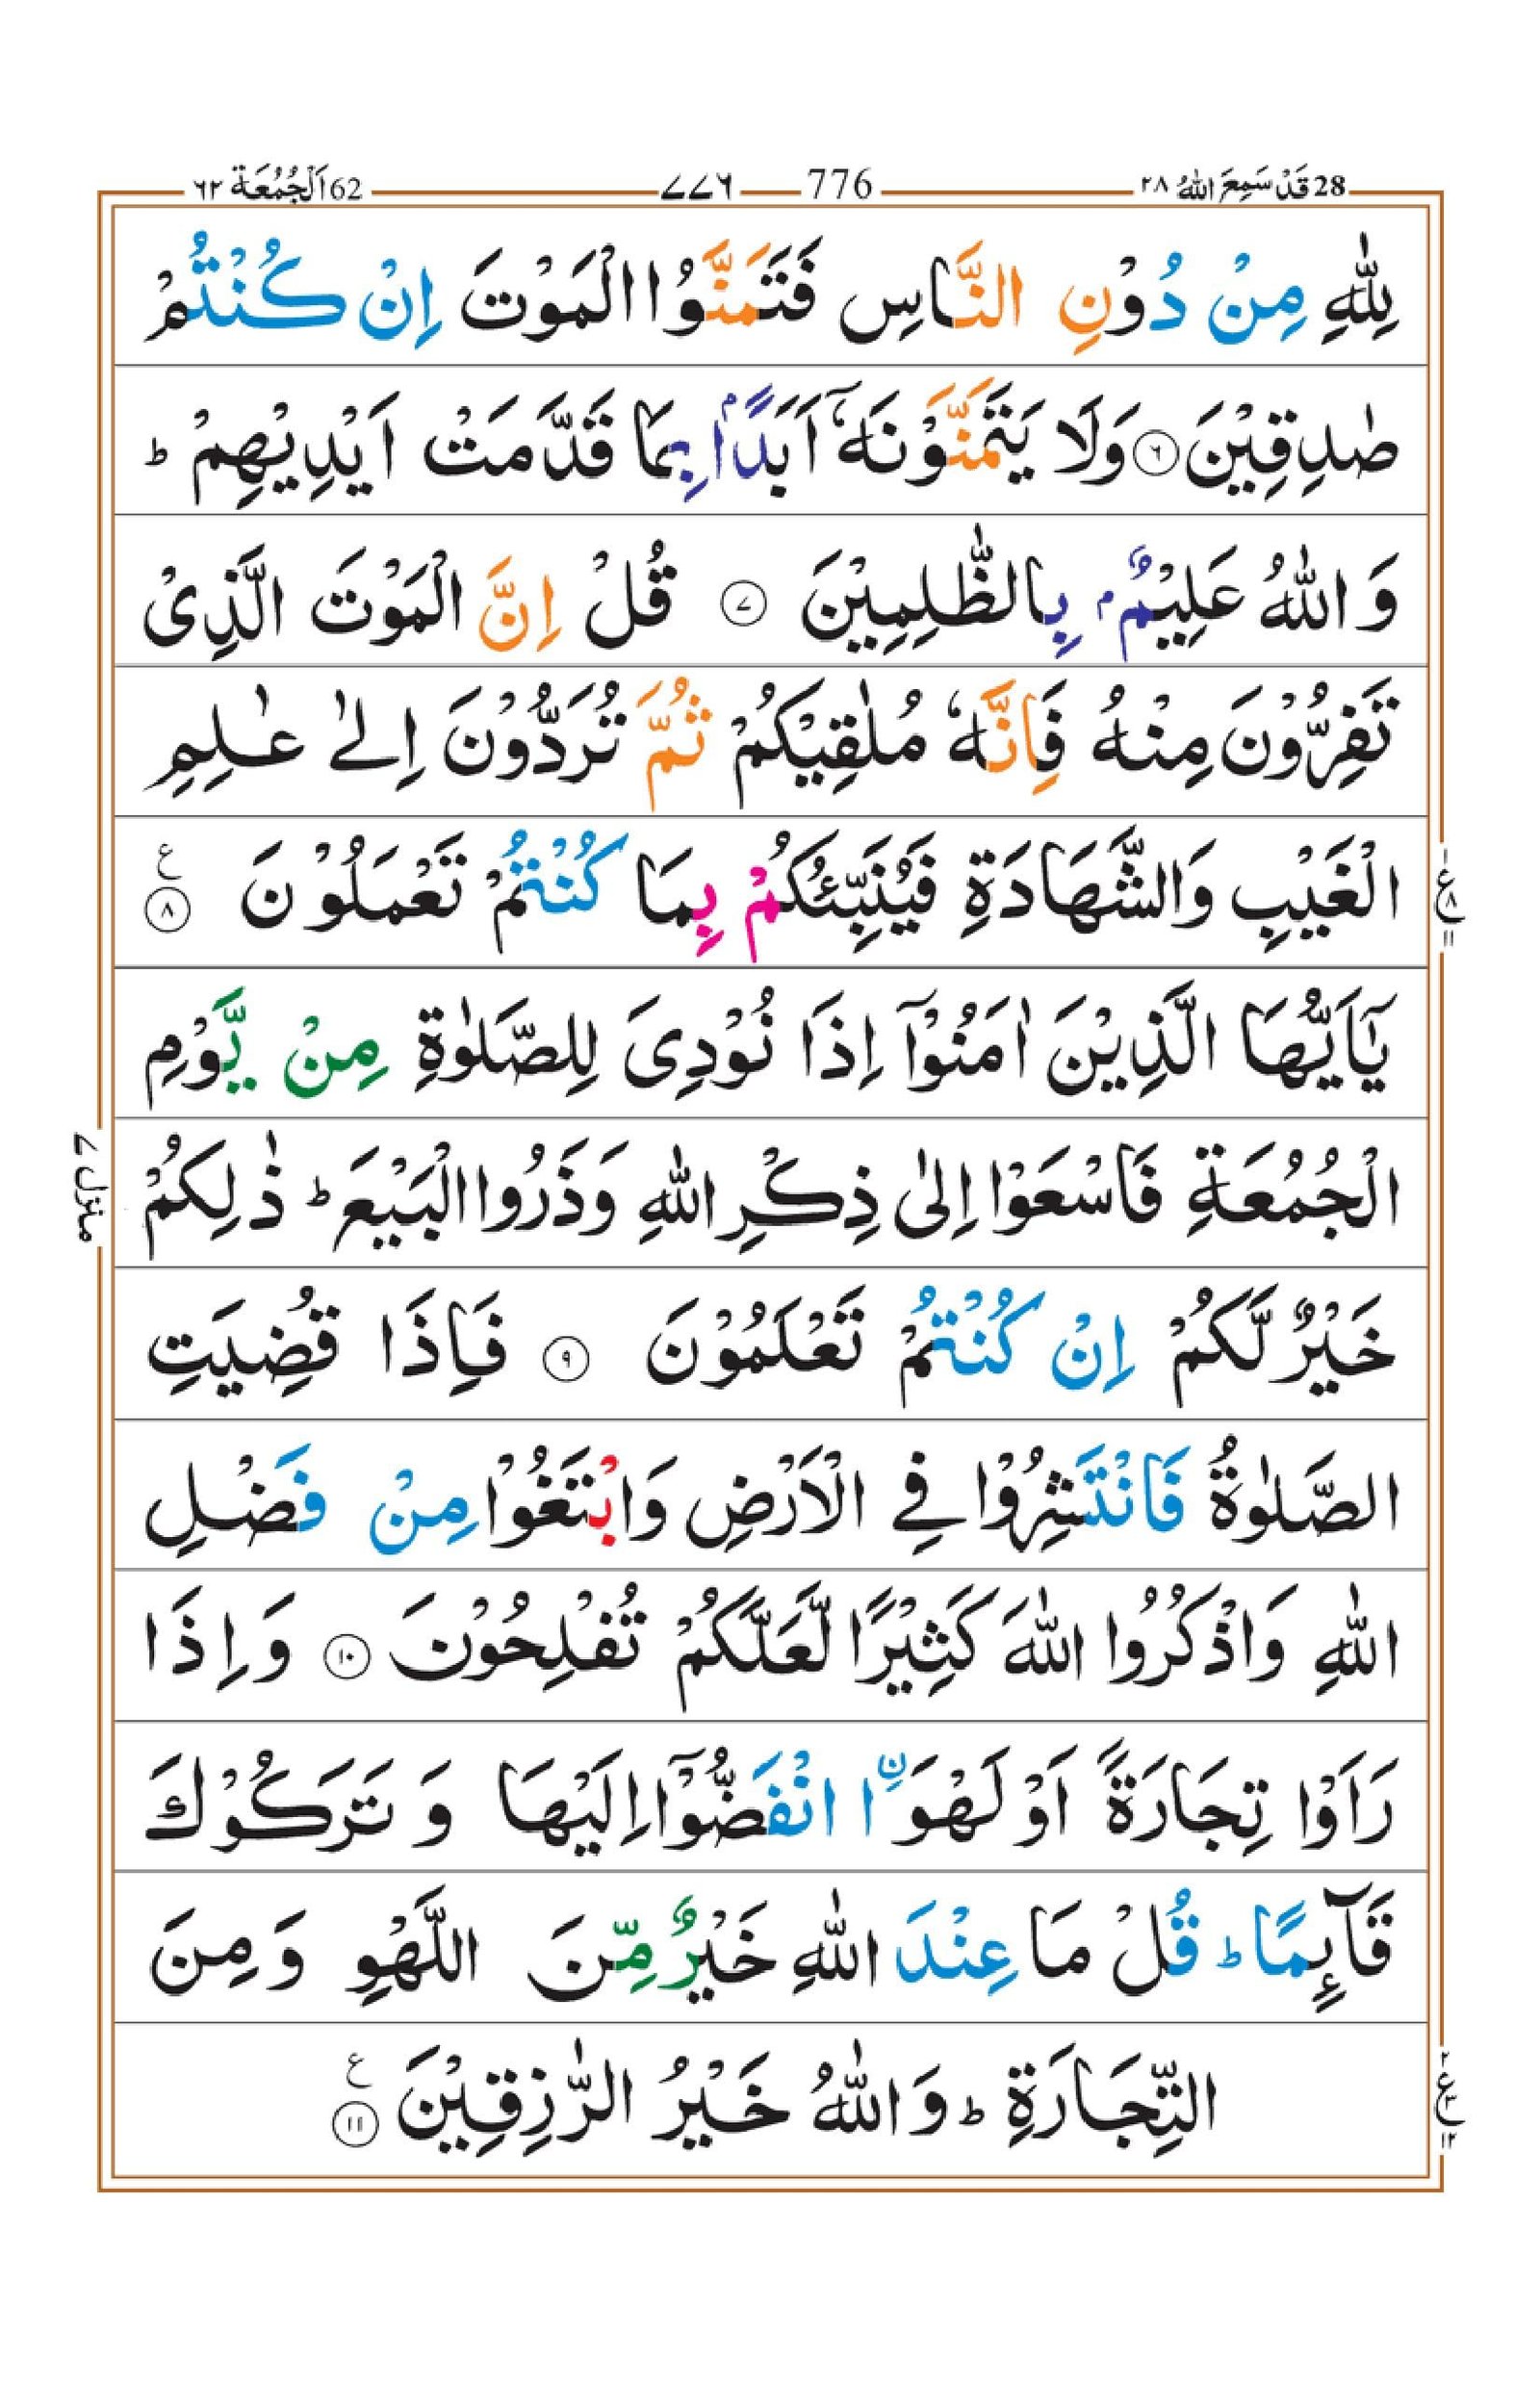 28 قَدْ سَمِعَ اللّٰهُ ٢٨
776 ٧٧٦
62 اَلْجُمُعَة ٦٢
لِلّٰهِ مِنْ دُوْنِ النَّاسِ فَتَمَنَّوُا الْمَوْتَ اِنْ كُنْتُمْ
صٰدِقِيْنَ ۝٦ وَلَا يَتَمَنَّوْنَهٗۤ اَبَدًۢا بِمَا قَدَّمَتْ اَيْدِيْهِمْ ؕ
وَ اللّٰهُ عَلِيْمٌۢ بِالظّٰلِمِيْنَ ۝٧ قُلْ اِنَّ الْمَوْتَ الَّذِیْ
تَفِرُّوْنَ مِنْهُ فَاِنَّهٗ مُلٰقِيْكُمْ ثُمَّ تُرَدُّوْنَ اِلٰى عٰلِمِ
الْغَيْبِ وَالشَّهَادَةِ فَيُنَبِّئُكُمْ بِمَا كُنْتُمْ تَعْمَلُوْنَ ۝٨ ع
يٰۤاَيُّهَا الَّذِيْنَ اٰمَنُوْۤا اِذَا نُوْدِیَ لِلصَّلٰوةِ مِنْ يَّوْمِ
الْجُمُعَةِ فَاسْعَوْا اِلٰى ذِكْرِ اللّٰهِ وَذَرُوا الْبَيْعَ ؕ ذٰلِكُمْ
خَيْرٌ لَّكُمْ اِنْ كُنْتُمْ تَعْلَمُوْنَ ۝٩ فَاِذَا قُضِيَتِ
الصَّلٰوةُ فَانْتَشِرُوْا فِی الْاَرْضِ وَابْتَغُوْا مِنْ فَضْلِ
اللّٰهِ وَاذْكُرُوا اللّٰهَ كَثِيْرًا لَّعَلَّكُمْ تُفْلِحُوْنَ ۝١٠ وَاِذَا
رَاَوْا تِجَارَةً اَوْ لَهْوَا ۨ انْفَضُّوْۤا اِلَيْهَا وَ تَرَكُوْكَ
قَآىِٕمًا ؕ قُلْ مَا عِنْدَ اللّٰهِ خَيْرٌ مِّنَ اللَّهْوِ وَمِنَ
التِّجَارَةِ ؕ وَاللّٰهُ خَيْرُ الرّٰزِقِيْنَ ۝١١ ع
١ ع ٨ ١١
منزل ٧
٢ ع ٣ ١٢